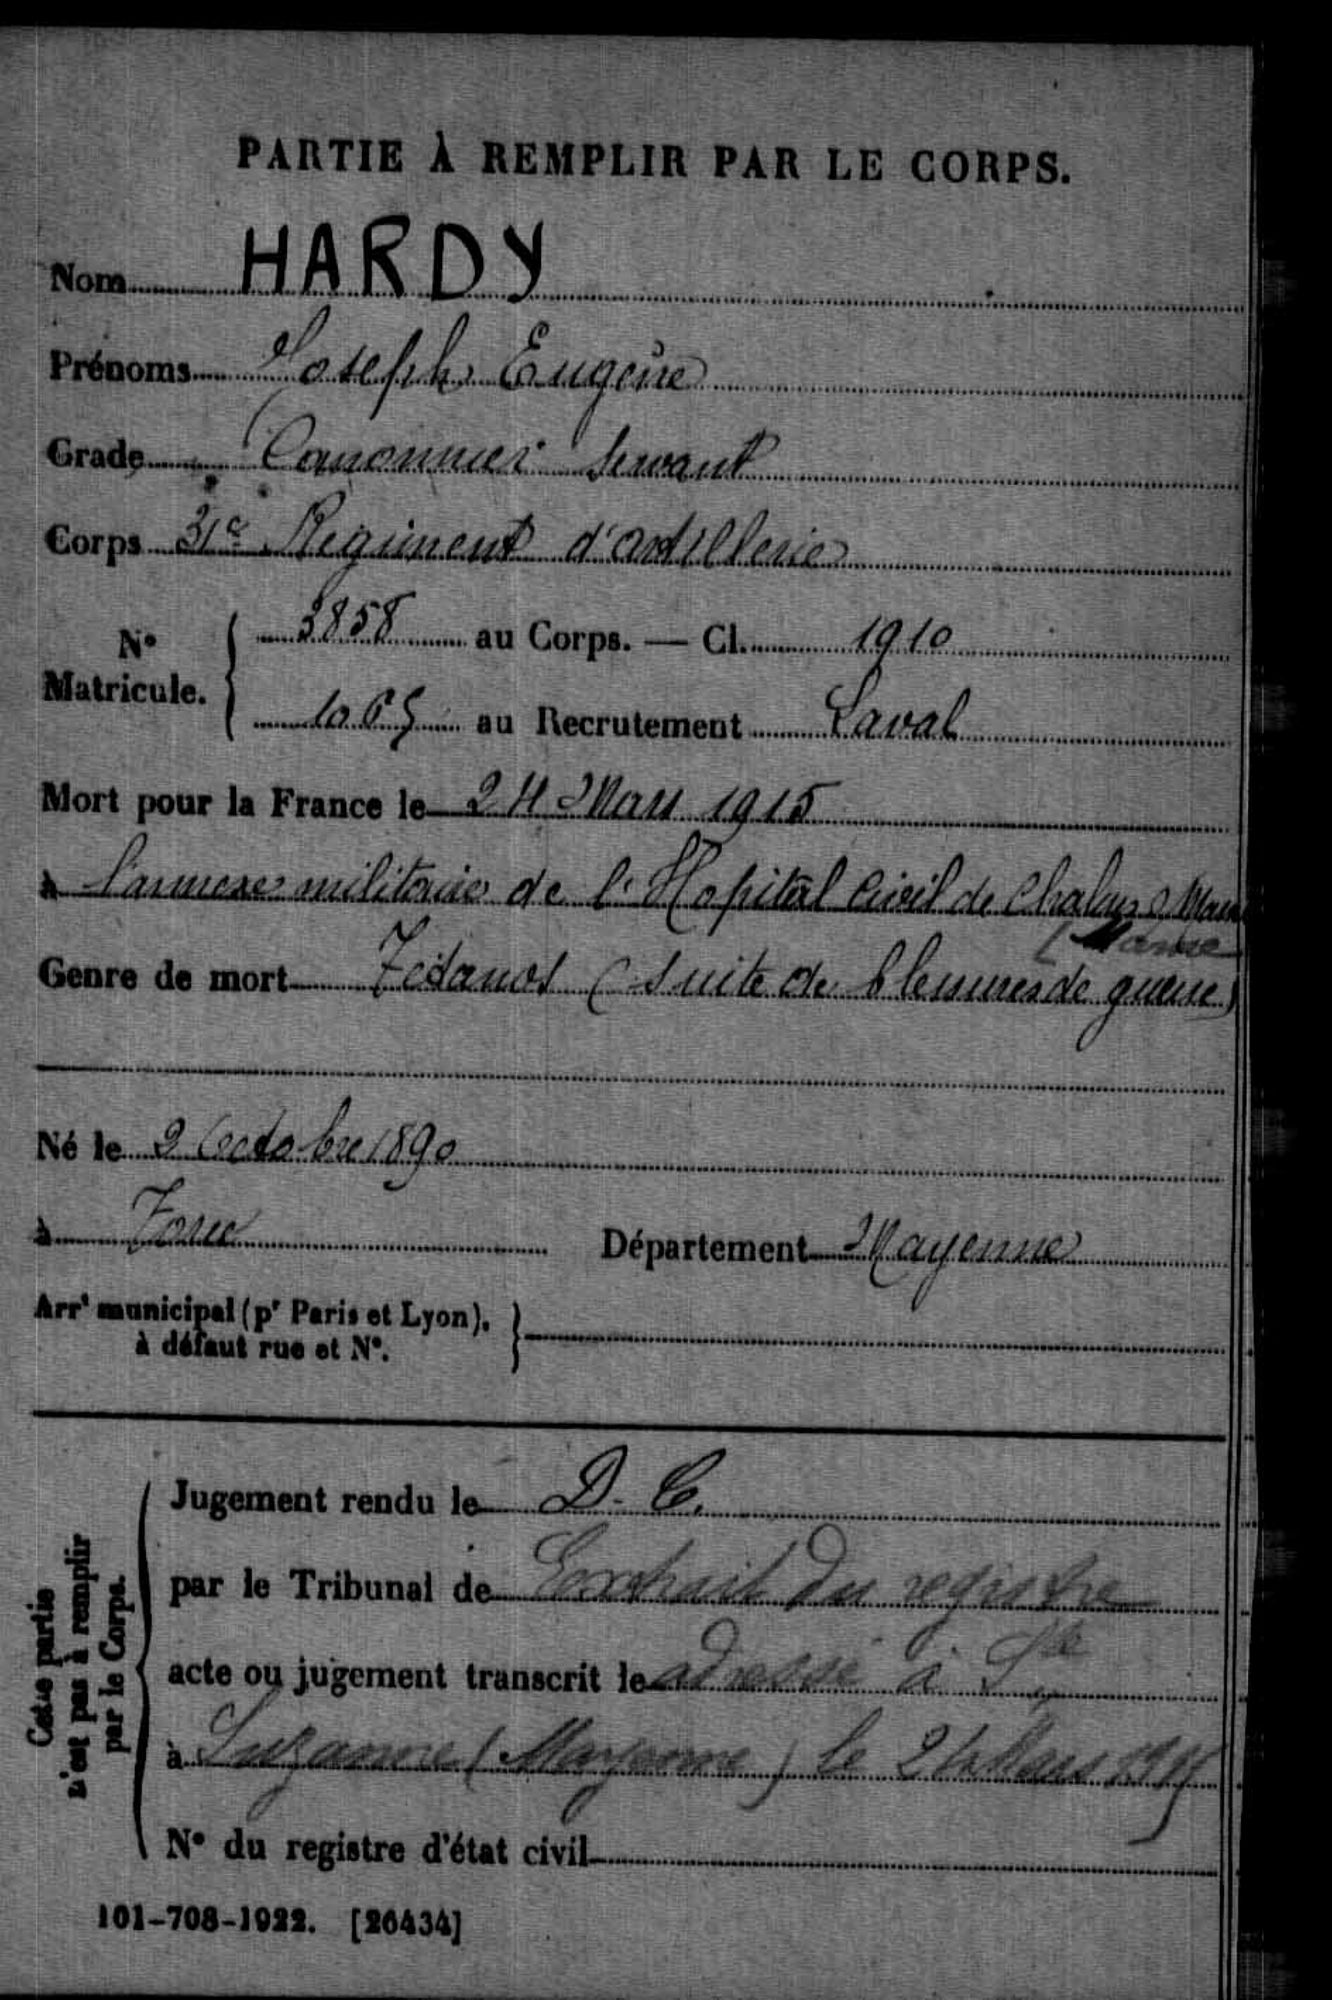 PARTIE À REMPLIR PAR LE CORPS.
Nom HARDY
Prénoms Joseph Eugène
Grade Canonnier Servant
Corps 31e Régiment d'artillerie
N° Matricule. 3858 au Corps. — Cl. 1910
1065 au Recrutement Laval
Mort pour la France le 24 Mars 1915
à l'annexe militaire de l'Hopital Civil de Chalons s/ Marne
(Marne
Genre de mort Tétanos (suite de blessures de guerre)
Né le 2 Octobre 1890
à Département Mayenne
Arrt municipal (pr Paris et Lyon),
à défaut rue et N°.
Cette partie
n'est pas à remplir
par le Corps.
Jugement rendu le D. C.
par le Tribunal de Extrait du registre
acte ou jugement transcrit le adressé à Ste
à Suzanne (Mayenne) le 24 Mars
N° du registre d'état civil
101-708-1922. [26434]